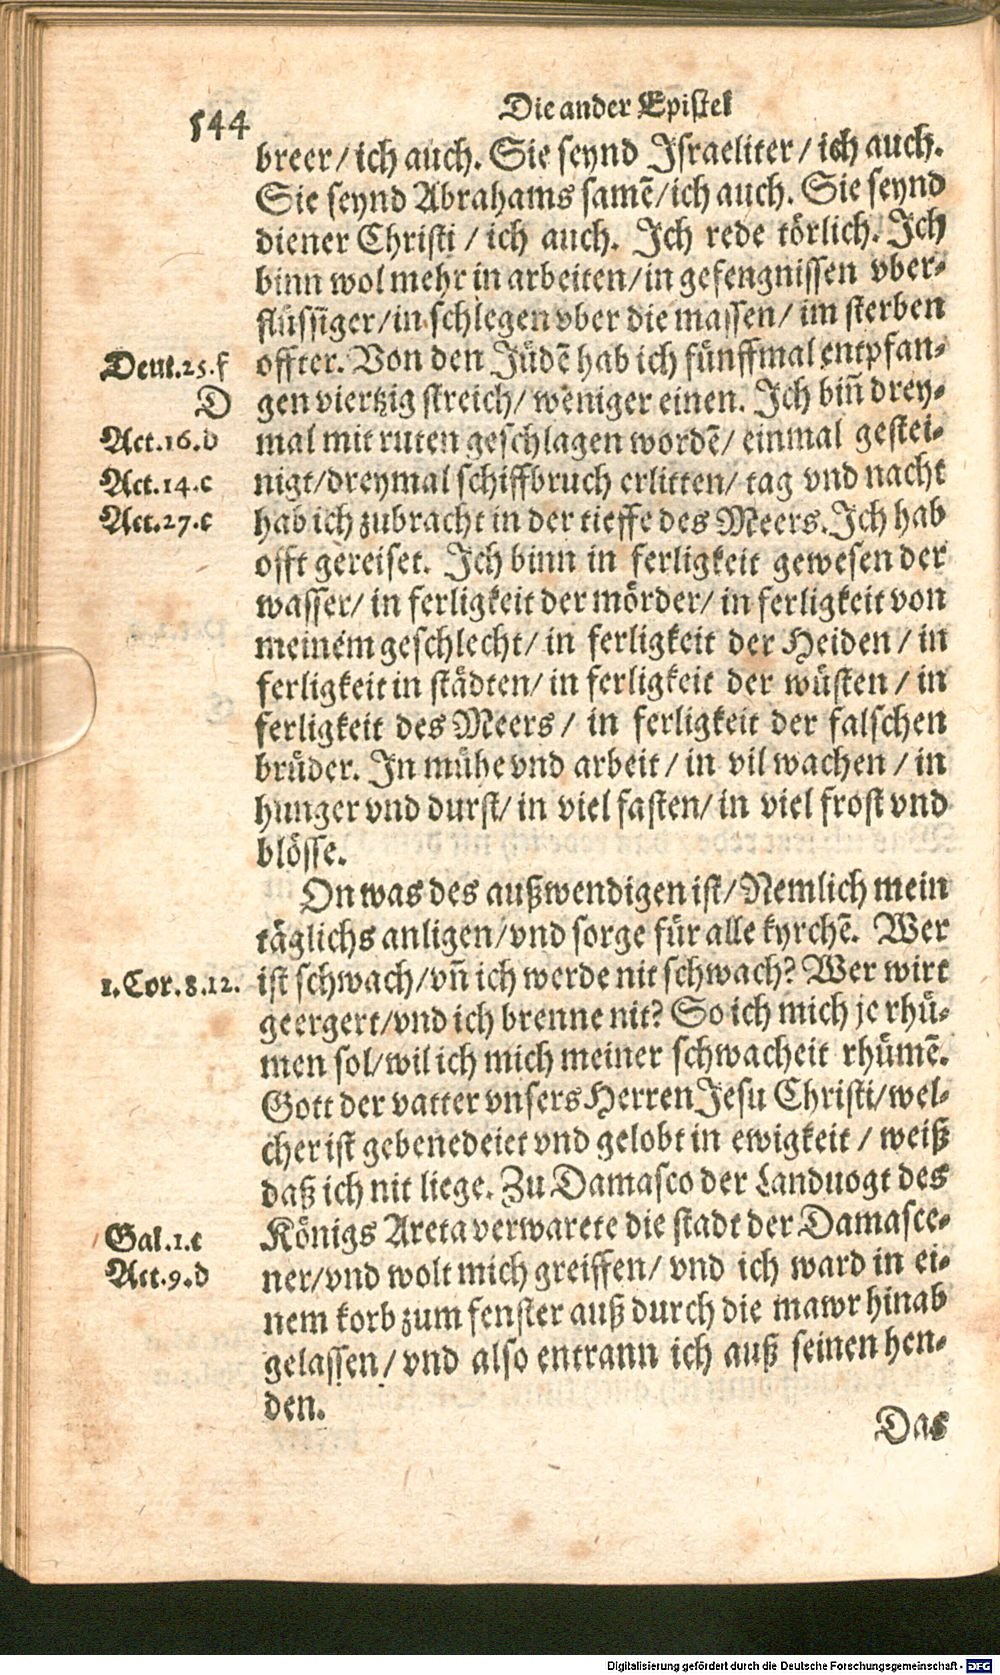 544
Die ander Epistel
breer / ich auch. Sie seynd Israeliter / ich auch.
Sie seynd Abrahams samē / ich auch. Sie seynd
diener Christi / ich auch. Ich rede törlich. Ich
binn wol mehr in arbeiten / in gefengnissen vber-
flüssiger / in schlegen vber die massen / im sterben
Deut.25.f
offter. Von den Jüdē hab ich fünffmal entpfan-
D
gen viertzig streich / weniger einen. Ich biñ drey-
Act.16.d
mal mit ruten geschlagen wordē / einmal gestei-
Act.14.c
nigt / dreymal schiffbruch erlitten / tag vnd nacht
Act.27.c
hab ich zubracht in der tieffe des Meers. Ich hab
offt gereiset. Ich binn in ferligkeit gewesen der
wasser / in ferligkeit der mörder / in ferligkeit von
meinem geschlecht / in ferligkeit der Heiden / in
ferligkeit in städten / in ferligkeit der wüsten / in
ferligkeit des Meers / in ferligkeit der falschen
brüder. In mühe vnd arbeit / in vil wachen / in
hunger vnd durst / in viel fasten / in viel frost vnd
blösse.
On was des außwendigen ist / Nemlich mein
täglichs anligen / vnd sorge für alle kyrchē. Wer
1.Cor.8.12.
ist schwach / vñ ich werde nit schwach? Wer wirt
geergert / vnd ich brenne nit? So ich mich je rhü-
men sol / wil ich mich meiner schwacheit rhümē.
Gott der vatter vnsers Herren Jesu Christi / wel-
cher ist gebenedeiet vnd gelobt in ewigkeit / weiß
daß ich nit liege. Zu Damasco der Landuogt des
Gal.1.c
Königs Areta verwarete die stadt der Damasce-
Act.9.d
ner / vnd wolt mich greiffen / vnd ich ward in ei-
nem korb zum fenster auß durch die mawr hinab
gelassen / vnd also entrann ich auß seinen hen-
den.
Das
Digitalisierung gefördert durch die Deutsche Forschungsgemeinschaft - DFG